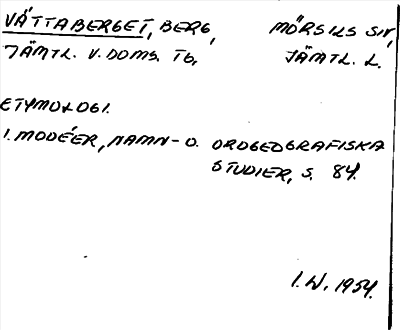 VÄTTABERGET, BERG, MÖRSILS SN,
JÄMTL. V. DOMS. TG, JÄMTL. L.
ETYMOLOGI.
I. MODÉER, NAMN- O. ORDGEOGRAFISKA
STUDIER, S. 84.
I. W. 1954.